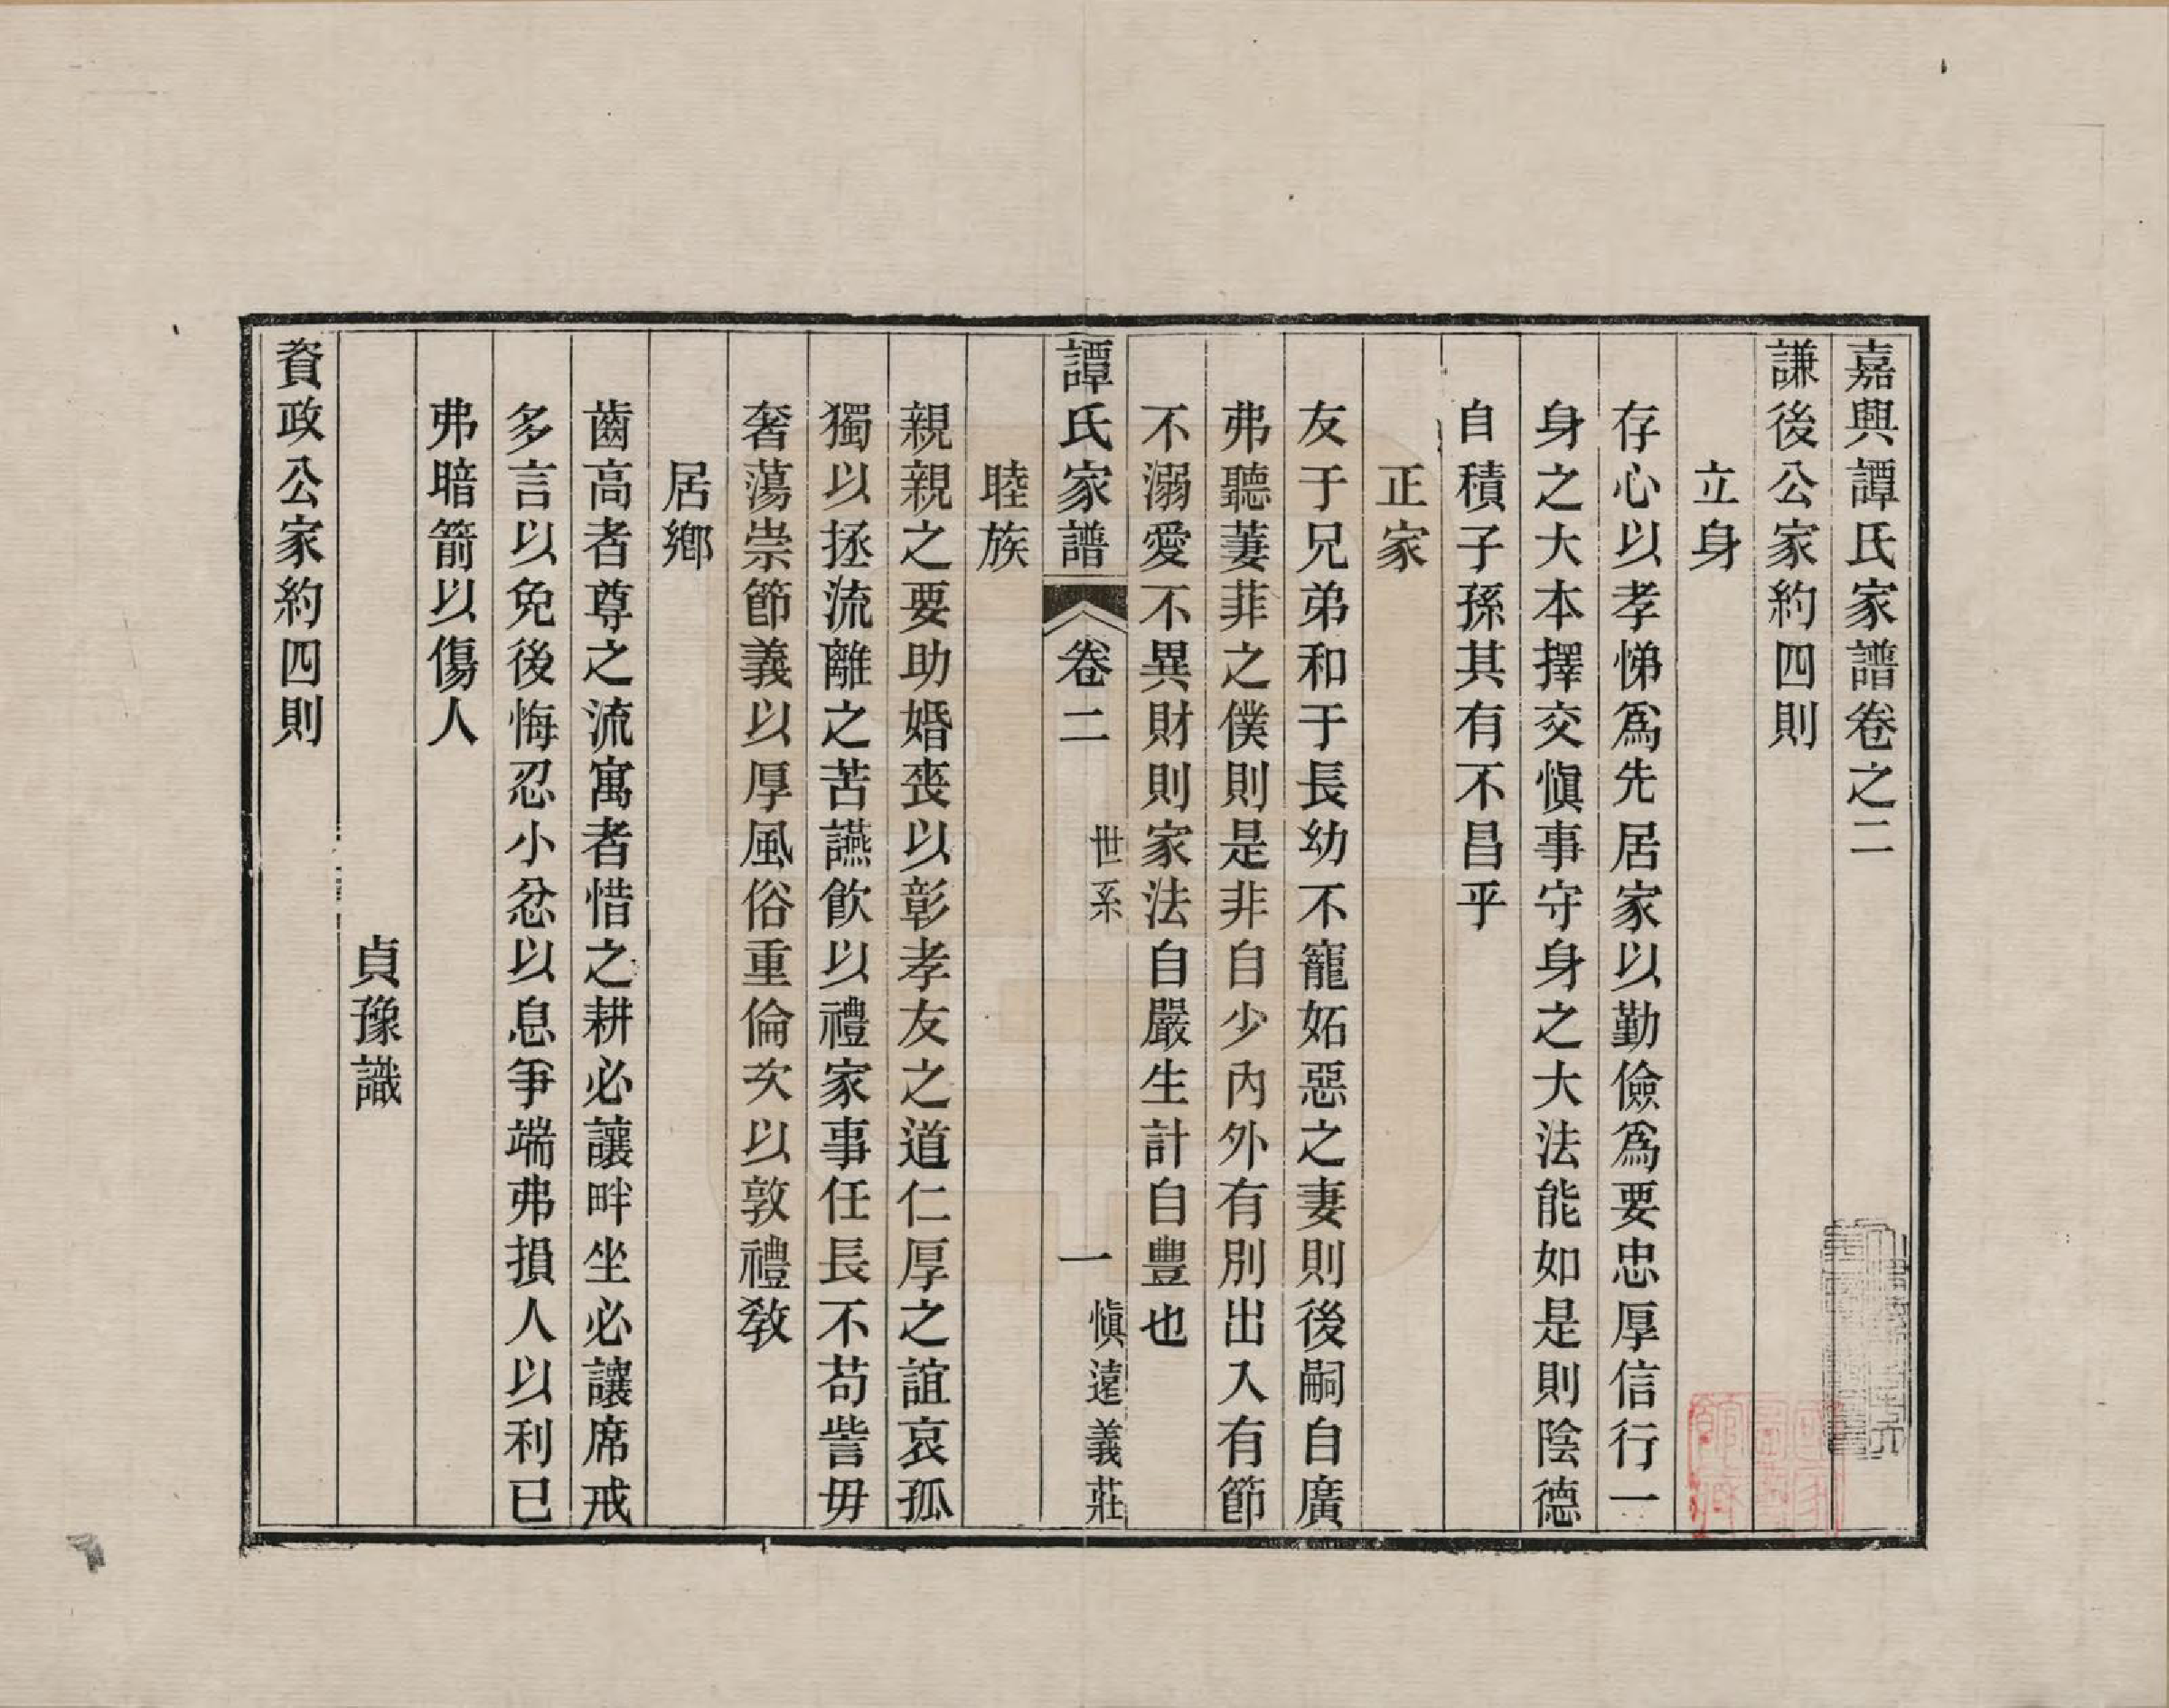 嘉興譚氏家譜卷之二
謙後公家約四則
立身
存心以孝悌爲先居家以勤儉爲要忠厚信行一
身之大本擇交愼事守身之大法能如是則陰德
自積子孫其有不昌乎
正家
友于兄弟和于長幼不寵妬惡之妻則後嗣自廣
弗聽萋菲之僕則是非自少內外有別出入有節
不溺愛不異財則家法自嚴生計自豐也
譚氏家譜 卷二 世系 一 愼遠義莊
睦族
親親之要助婚喪以彰孝友之道仁厚之誼哀孤
獨以拯流離之苦讌飮以禮家事任長不苟訾毋
奢蕩崇節義以厚風俗重倫次以敦禮敎
居鄕
齒高者尊之流寓者惜之耕必讓畔坐必讓席戒
多言以免後悔忍小忿以息爭端弗損人以利已
弗暗箭以傷人
貞豫識
資政公家約四則